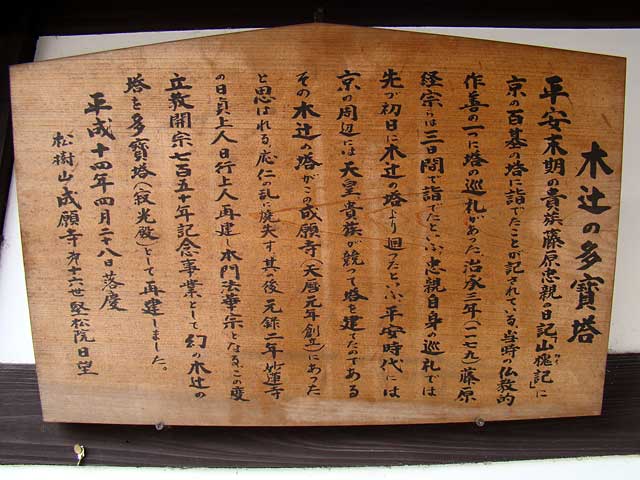 木辻の多寳塔
平安末期の貴族藤原忠親の日記「山槐記」に
京の百基の塔に詣でたことが記されている。当時の仏教的
作善の一に塔の巡礼があった。治承三年(一一七九)藤原
経宗らは三日間で詣でたといい、忠親自身の巡礼では
先づ初日に木辻の塔より廻ったという。平安時代には
京の周辺には天皇貴族が競って塔を建てたのである
その木辻の塔がこの成願寺(天暦元年創立)にあった
と思はれる。応仁の乱で焼失す。其の後元禄二年妙蓮寺
の日貞上人日行上人再建し本門法華宗となる。この度
立教開宗七百五十年記念事業として幻の木辻の
塔を多寳塔(寂光殿)として再建しました。
平成十四年四月二十八日落慶
松樹山成願寺 第十六世 堅松院日望